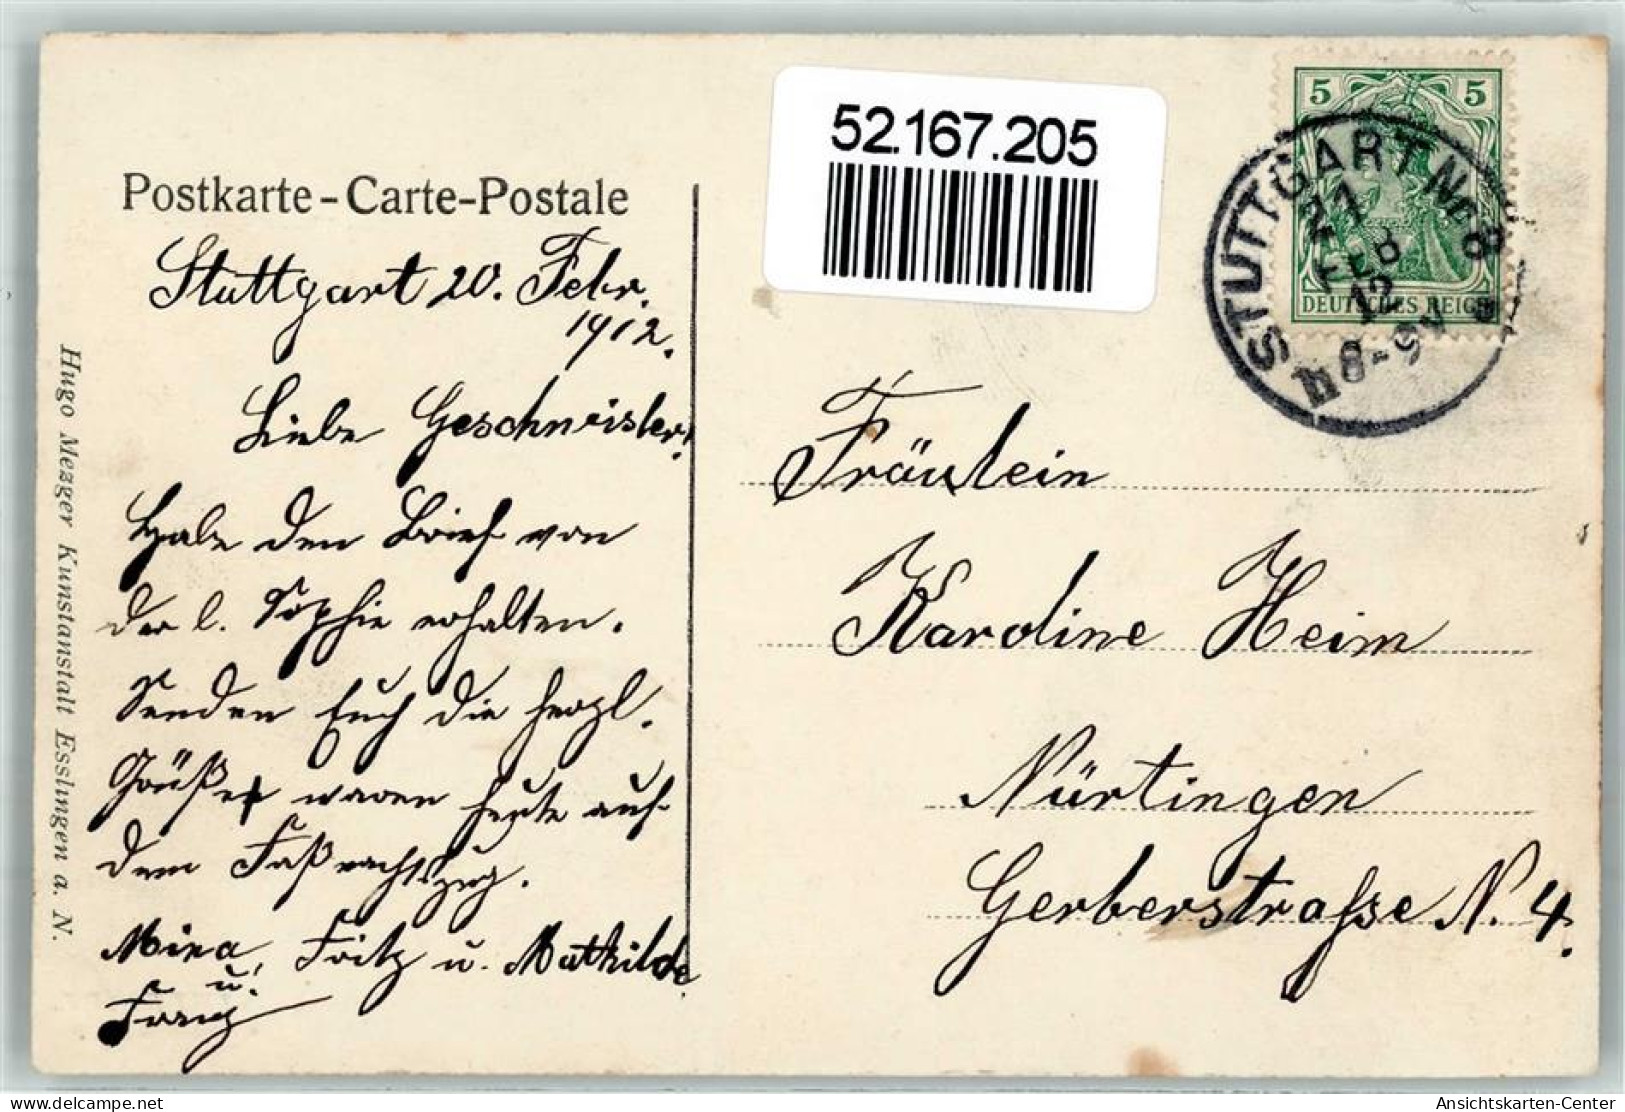 52.167.205
5 5
DEUTSCHES REICH
STUTTGART No 8
21
FEB
12
8-9V
Postkarte - Carte-Postale
Stuttgart 20. Febr.
1912.
Liebe Geschwister!
Habe den Brief von
der l. Sophie erhalten.
Senden Euch die herzl.
Grüße waren heute auf
dem Faßnachtszug.
Mina, Fritz u. Mathilde
u.
Franz
Fräulein
Karoline Heim
Nürtingen
Gerberstraße N. 4.
Hugo Mezger Kunstanstalt Esslingen a. N.
Ansichtskarten-Center